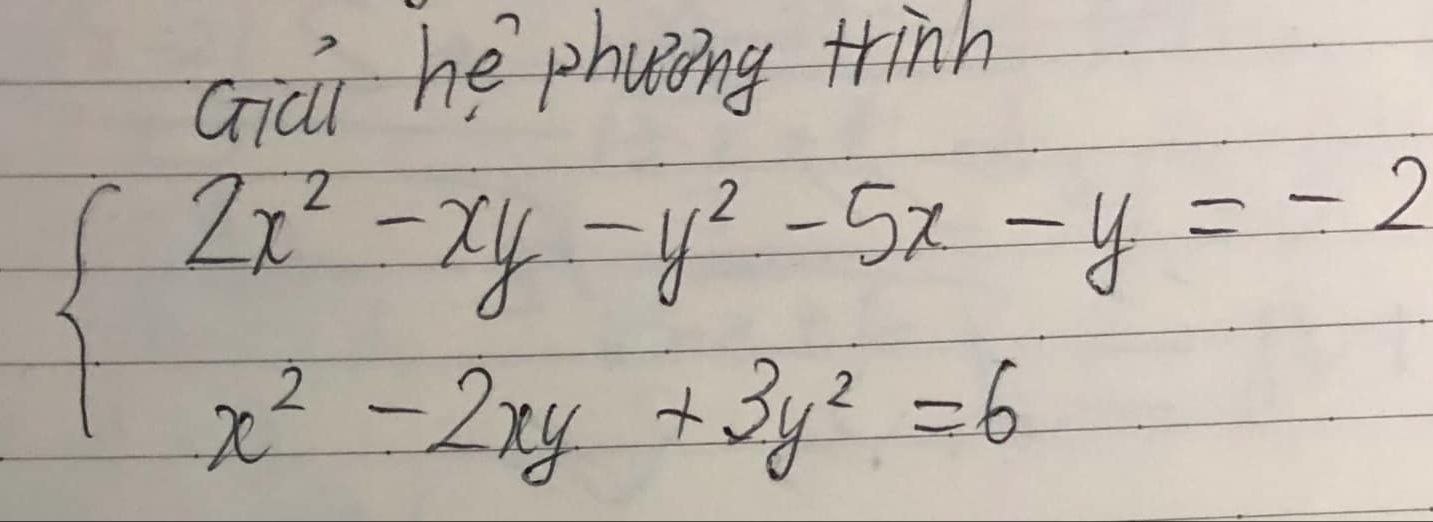 Giải hệ phương trình
2x² - xy - y² - 5x - y = - 2
x² - 2xy + 3y² = 6